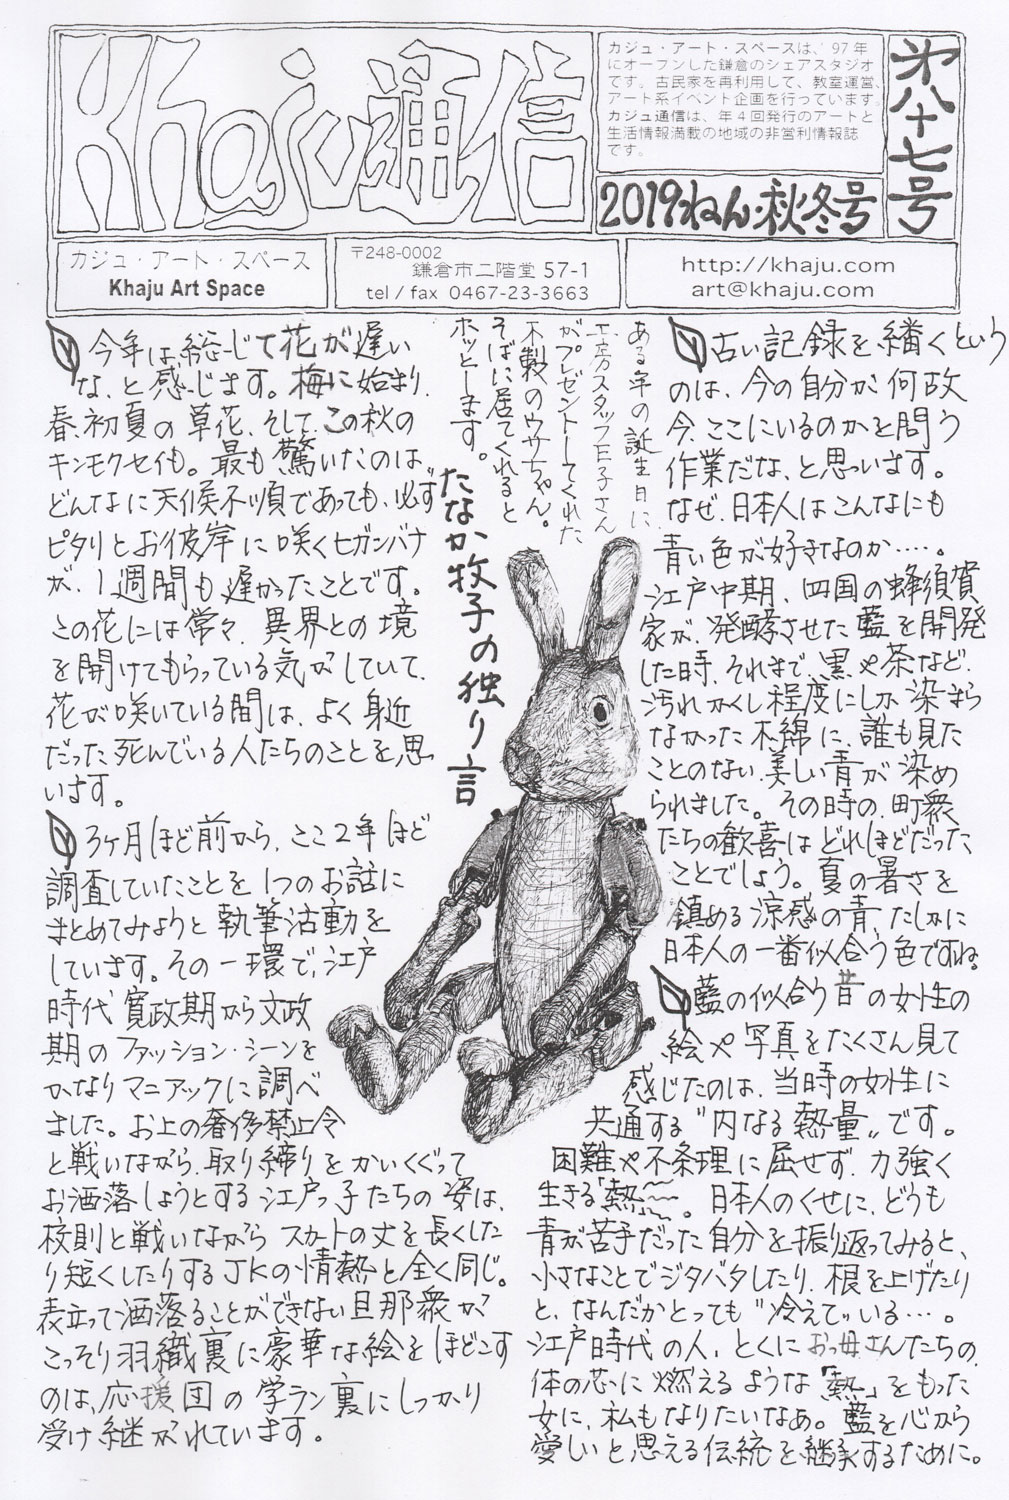 Khaju通信
カジュ・アート・スペースは、'97年
にオープンした鎌倉のシェアスタジオ
です。古民家を再利用して、教室運営、
アート系イベント企画を行っています。
カジュ通信は、年4回発行のアートと
生活情報満載の地域の非営利情報誌
です。
第八十七号
2019ねん・秋冬号
カジュ・アート・スペース
Khaju Art Space
〒248-0002
鎌倉市二階堂 57-1
tel / fax 0467-23-3663
http://khaju.com
art@khaju.com
今年は、総じて花が遅い
な、と感じます。梅に始まり、
春、初夏の草花、そして、この秋の
キンモクセイも。最も驚いたのは、
どんなに天候不順であっても、必ず
ピタリとお彼岸に咲くヒガンバナ
が、1週間も遅かったことです。
この花には常々、異界との境
を開けてもらっている気がしていて、
花が咲いている間は、よく身近
だった死んでいる人たちのことを思
います。
3ヶ月ほど前から、ここ2年ほど
調査していたことを1つのお話に
まとめてみようと執筆活動を
しています。その一環で、江戸
時代寛政期から文政
期のファッション・シーンを
かなりマニアックに調べ
ました。お上の奢侈禁止令
と戦いながら、取り締りをかいくぐって
お洒落しようとする江戸っ子たちの姿は、
校則と戦いながらスカートの丈を長くした
り短くしたりするJKの情熱と全く同じ。
表立って洒落ることができない旦那衆が
こっそり羽織裏に豪華な絵をほどこす
のは、応援団の学ラン裏にしっかり
受け継がれています。
ある年の誕生日に、
工房スタッフE子さん
がプレゼントしてくれた
木製のウサちゃん。
そばに居てくれると
ホッとします。
たなか牧子の独り言
古い記録を繙くという
のは、今の自分が何故
今、ここにいるのかを問う
作業だな、と思います。
なぜ、日本人はこんなにも
青い色が好きなのか‥‥。
江戸中期、四国の蜂須賀
家が、発酵させた藍を開発
した時、それまで、黒や茶など、
汚れかくし程度にしか染まら
なかった木綿に、誰も見た
ことのない美しい青が染め
られました。その時の、町衆
たちの歓喜はどれほどだった
ことでしょう。夏の暑さを
鎮める涼感の青、たしかに
日本人の一番似合う色ですね。
藍の似合う昔の女性の
絵や写真をたくさん見て
感じたのは、当時の女性に
共通する"内なる熱量"です。
困難や不条理に屈せず、力強く
生きる「熱」。日本人のくせに、どうも
青が苦手だった自分を振り返ってみると、
小さなことでジタバタしたり、根を上げたり
と、なんだかとっても"冷えて"いる‥‥。
江戸時代の人、とくにお母さんたちの、
体の芯に燃えるような「熱」をもった
女に、私もなりたいなあ。藍を心から
愛しいと思える伝統を継承するために。